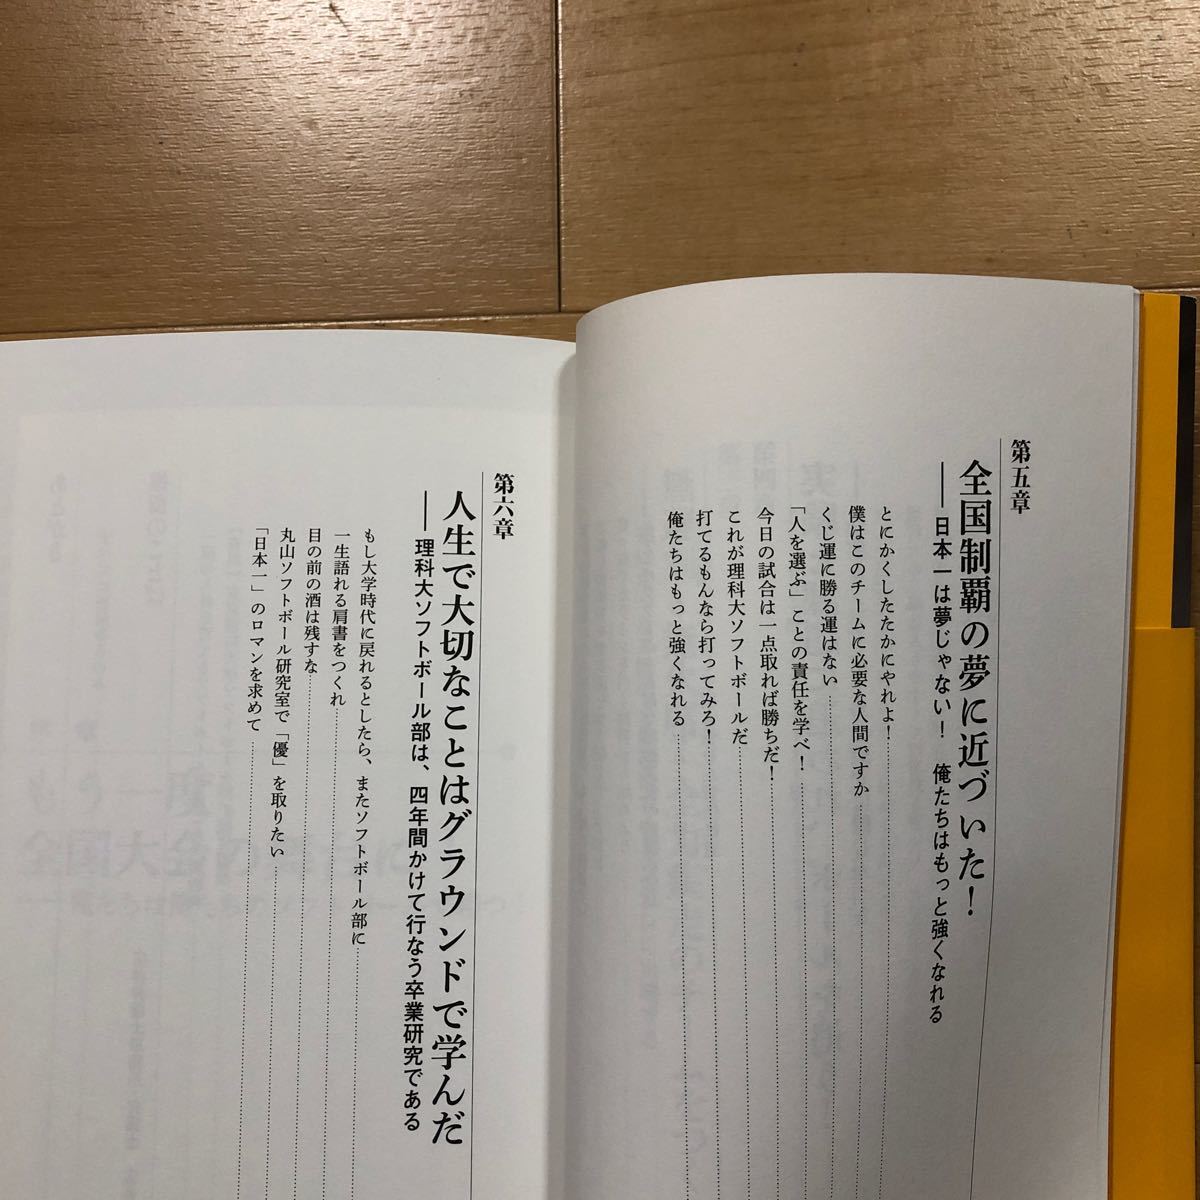 第五章
全国制覇の夢に近づいた！
――日本一は夢じゃない！　俺たちはもっと強くなれる
とにかくしたたかにやれよ！
僕はこのチームに必要な人間ですか
くじ運に勝る運はない
「人を選ぶ」ことの責任を学べ！
今日の試合は一点取れば勝ちだ！
これが理科大ソフトボールだ
打てるもんなら打ってみろ！
俺たちはもっと強くなれる
第六章
人生で大切なことはグラウンドで学んだ
――理科大ソフトボール部は、四年間かけて行なう卒業研究である
もし大学時代に戻れるとしたら、またソフトボール部に
一生語れる肩書をつくれ
目の前の酒は残すな
丸山ソフトボール研究室で「優」を取りたい
「日本一」のロマンを求めて